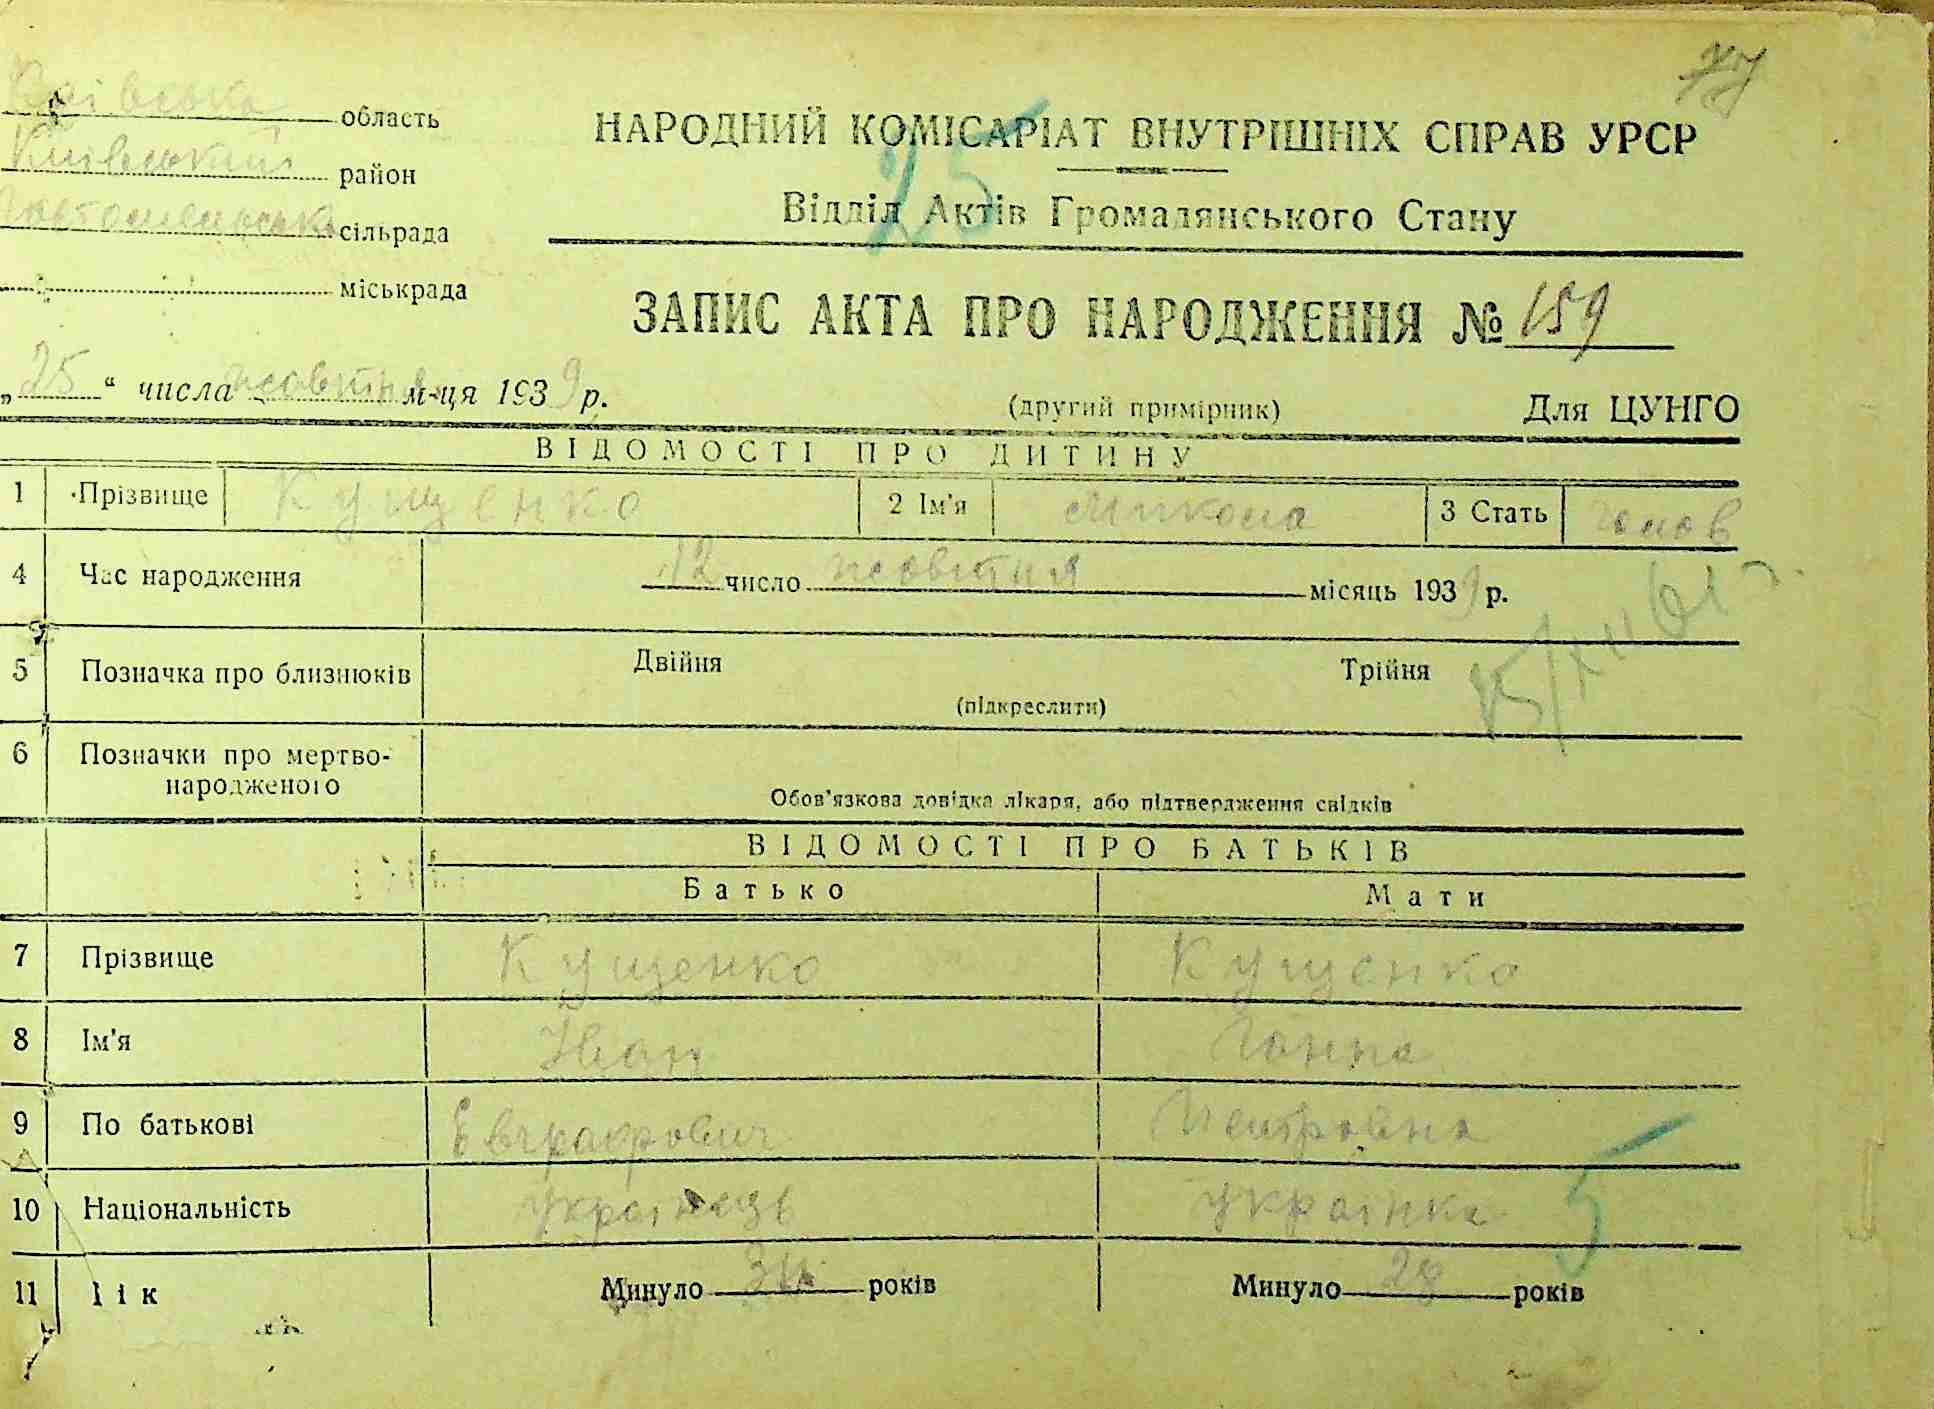 Київська область
Київський район
сільрада
міськрада
77
НАРОДНИЙ КОМІСАРІАТ ВНУТРІШНІХ СПРАВ УРСР
25
Відділ Актів Громадянського Стану
ЗАПИС АКТА ПРО НАРОДЖЕННЯ № 159
„25“ числа жовтня м-ця 1939 р.
(другий примірник) Для ЦУНГО
ВІДОМОСТІ ПРО ДИТИНУ
1 Прізвище Кущенко 2 Ім'я Микола 3 Стать чолов
4 Час народження 12 число жовтня місяць 1939 р.
5 Позначка про близнюків Двійня Трійня
(підкреслити)
6 Позначки про мертво-
народженого
Обов'язкова довідка лікаря, або підтвердження свідків
ВІДОМОСТІ ПРО БАТЬКІВ
Батько Мати
7 Прізвище Кущенко Кущенко
8 Ім'я Іван Ганна
9 По батькові Евграфович Петровна
10 Національність українець українка
5
11 Лік Минуло 34 років Минуло 28 років